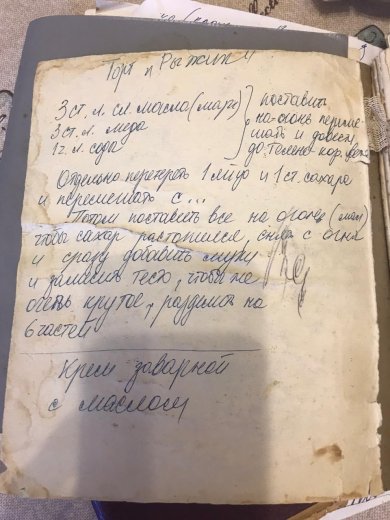 Торт „Рыжик"
3 ст. л. сл масла (марг)
3 ст. л. меда
1 ч. л. сода
поставить
на огонь переме-
шать и довести
до темно-кор. цвета
Отдельно перетереть 1 яйцо и 1 ст. сахара
и перемешать с...
Потом поставить все на огонек (мал)
чтобы сахар растопился, снять с огня
и сразу добавить муку
и замесить тесто, чтобы не
очень крутое, разделить на
6 частей
Крем заварной
с маслом